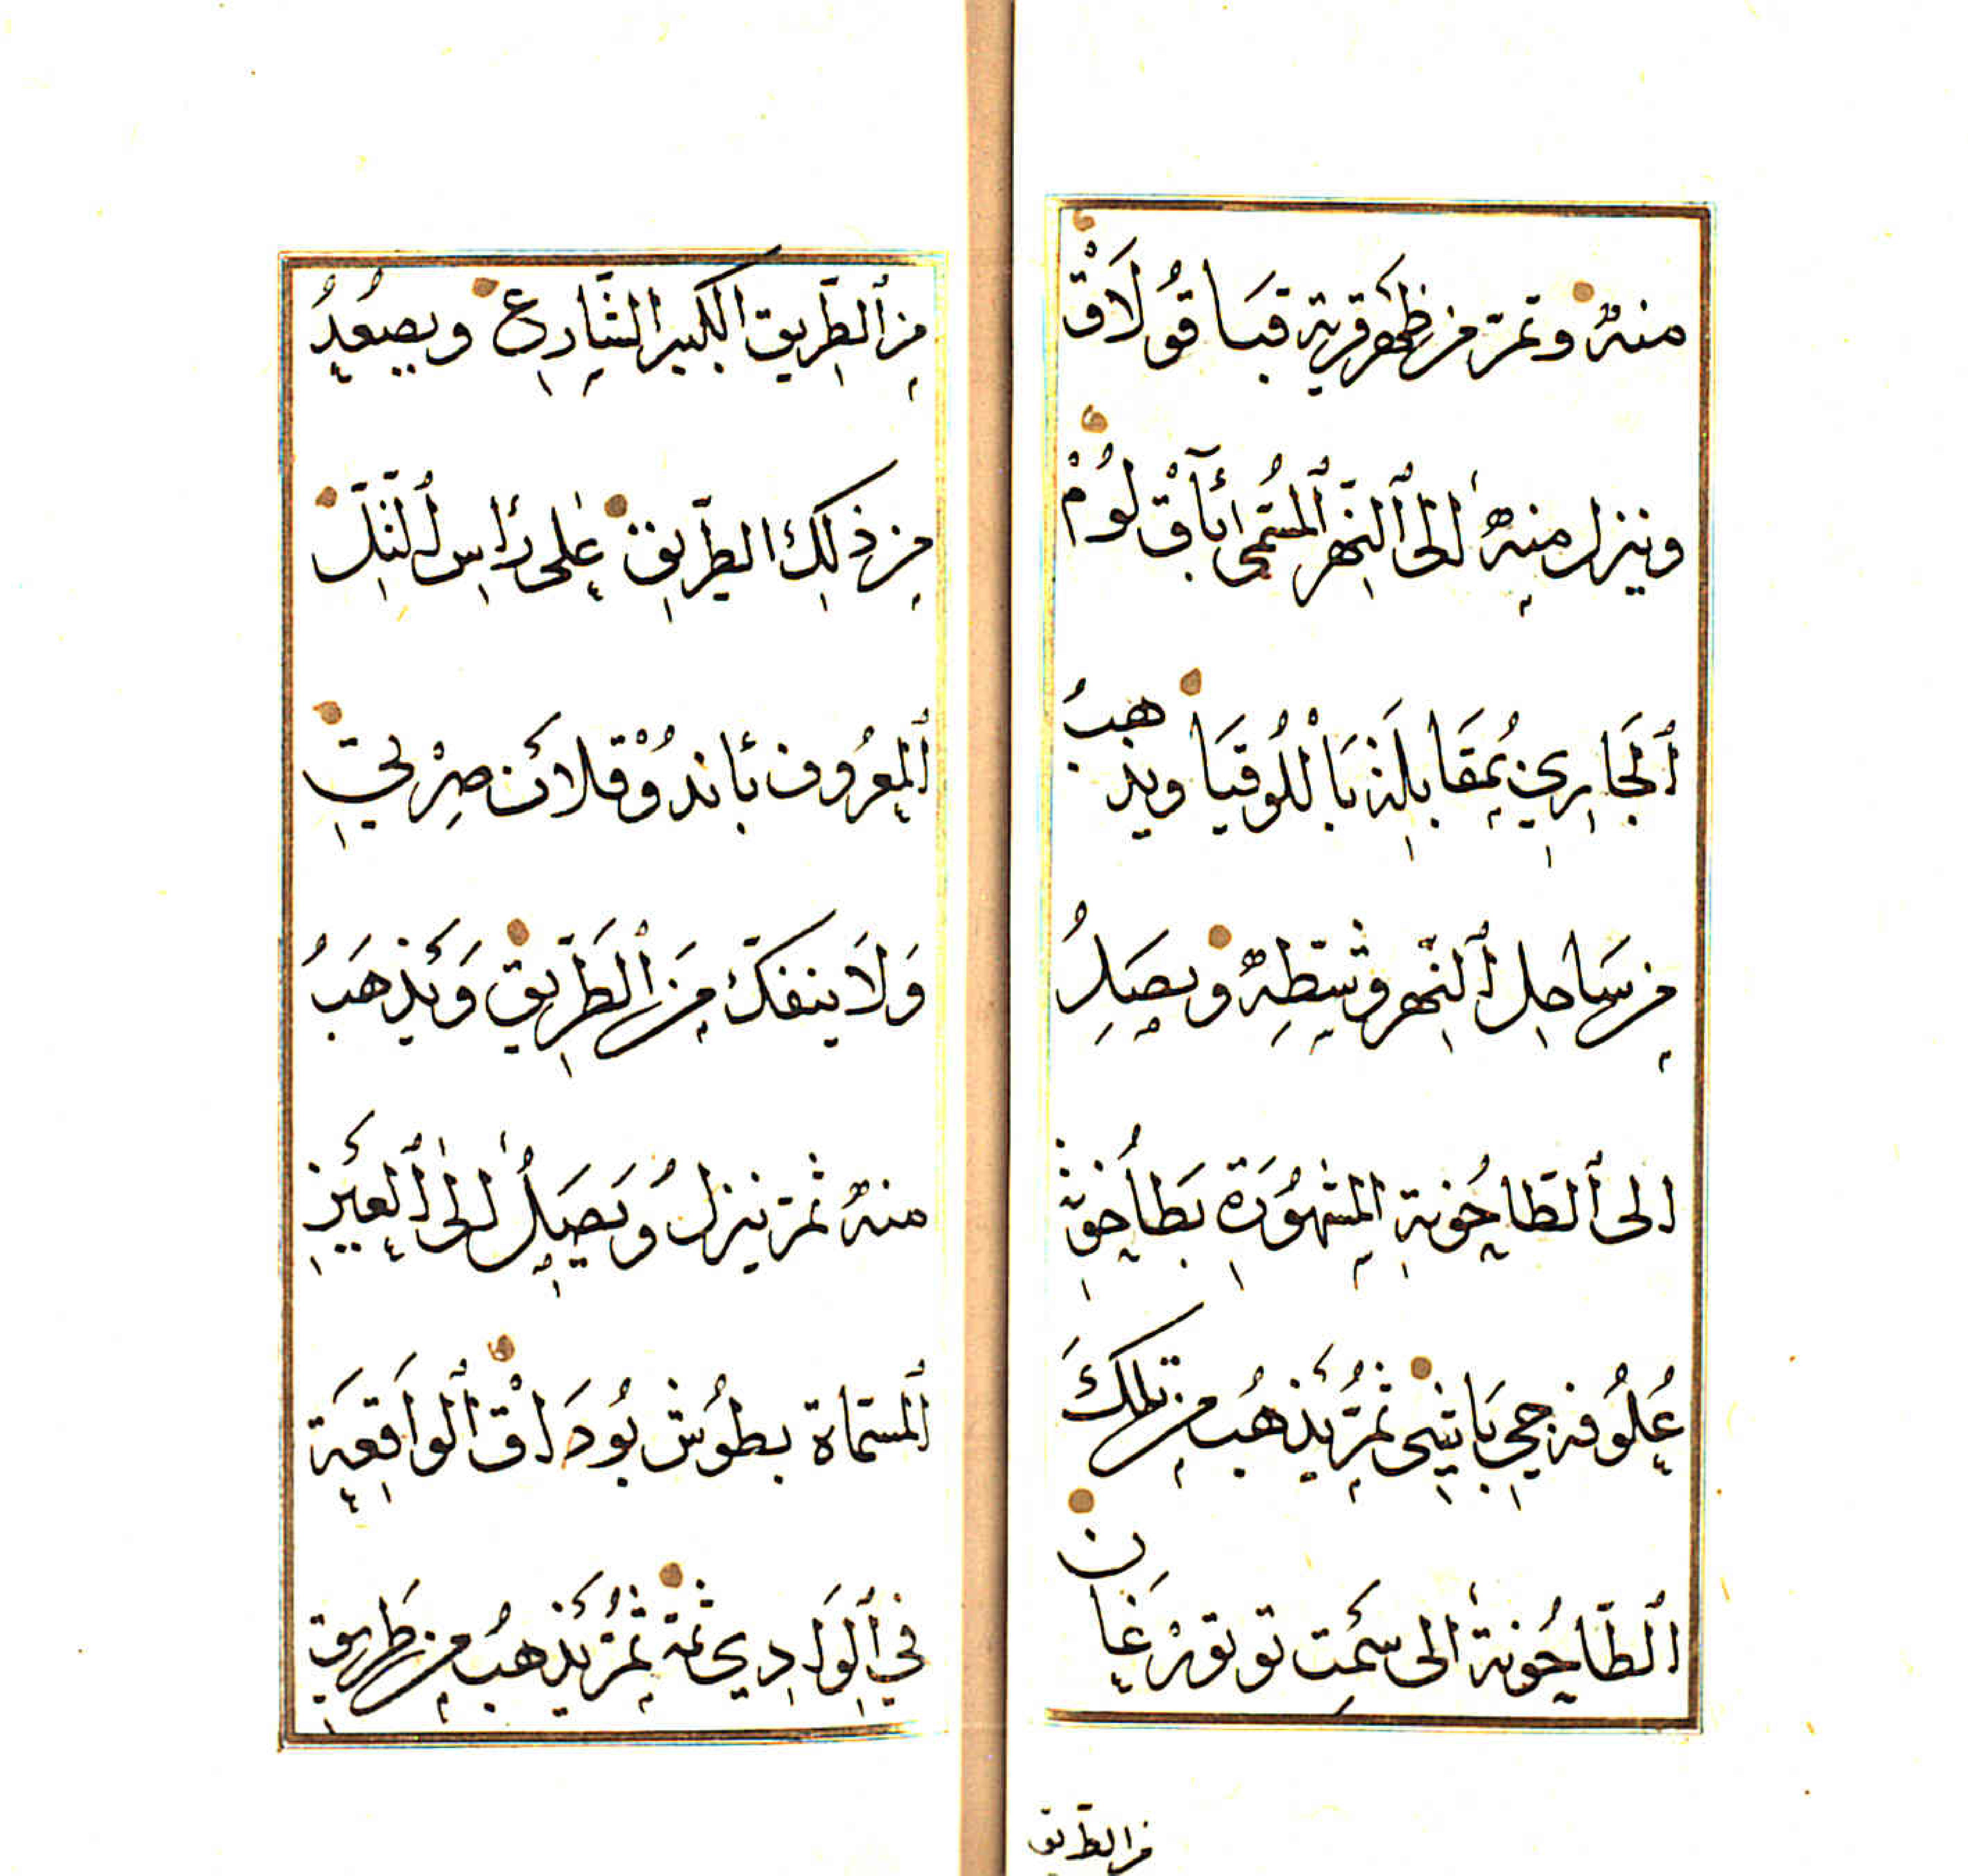 منهُ وتمرّ من ظهر قرية قبا قولاق
وينزل منه الى ٱلنّهر ٱلمسمّى بآق لوم
ٱلجاري بمقابلة بالوقيا ويذهب
من ساحل ٱلنّهر وشطّه ويصل
الى ٱلطّاحونة المشهورة بطاحونة
علوفه جي باشي ثمّ يذهب من تلك
ٱلطّاحونة الى سمت توتورغان
من الطريق
من ٱلطّريق الكبير الشّارع ويصعد
من ذلك الطّريق على رأس ٱلتّلّ
ٱلمعروف
ولا ينفكّ من ٱلطّريق ويذهب
منه ثمّ ينزل ويصل الى ٱلعين
ٱلمسمّاة بطوش بوداق ٱلواقعة
في ٱلوادي ثمّة ثمّ يذهب من طريق